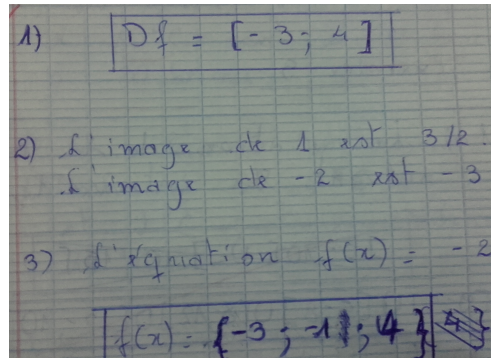 1) Df = [-3 ; 4]
2) L'image de 1 est 3/2.
L'image de -2 est -3
3) L'équation f(x) = -2
f(x) = {-3 ; -1 ; 4}